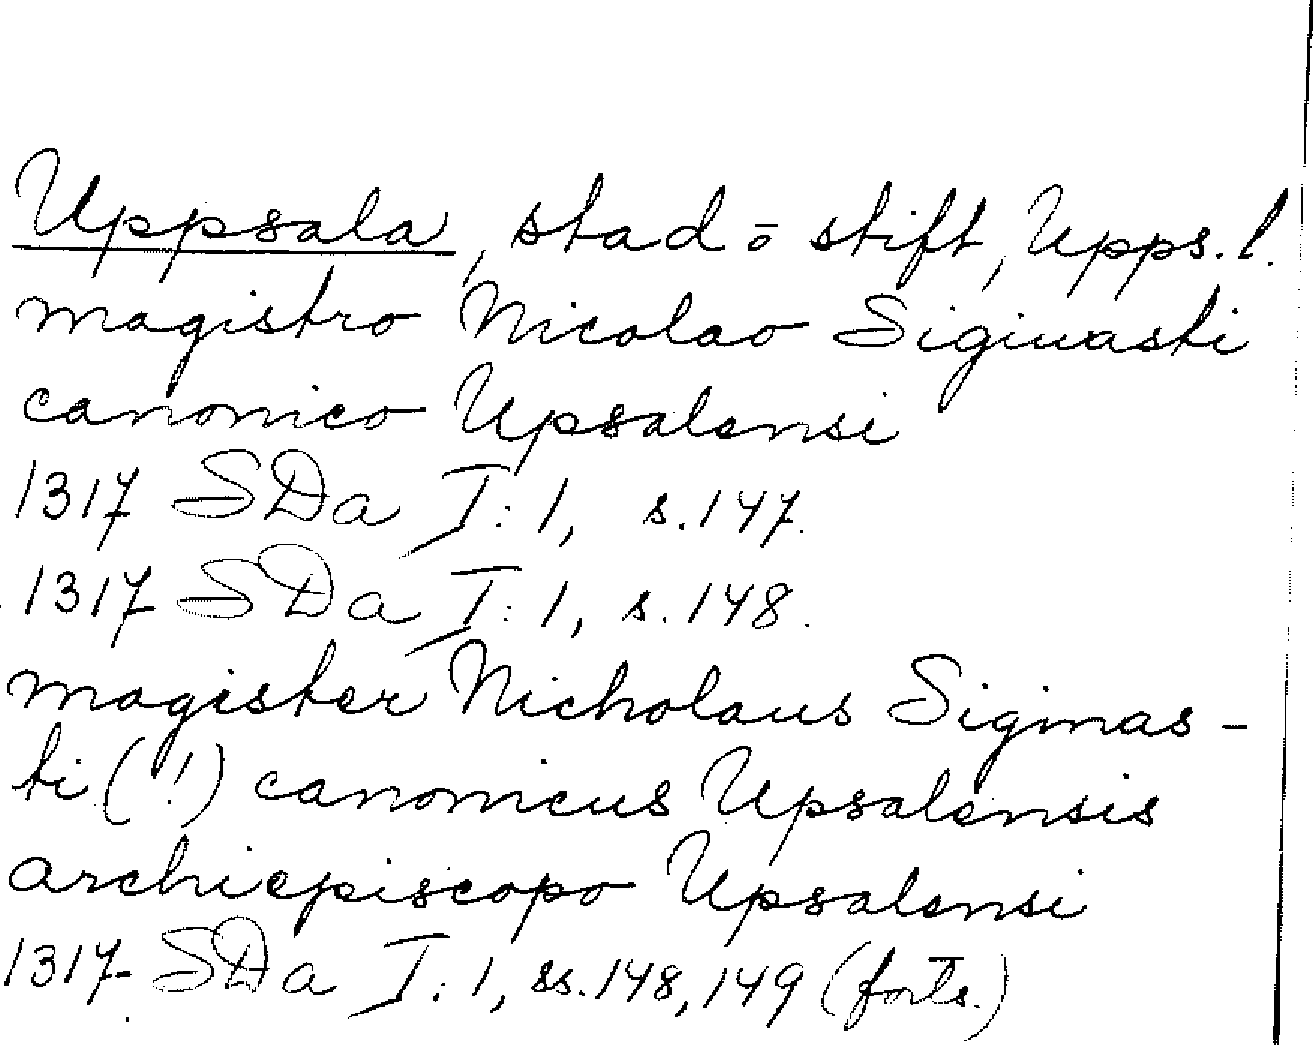 Uppsala, stad o stift, Upps. l.
magistro Nicolao Sigiuasti
canonico Upsalensi
1317 SDa I:1, s. 147.
1317 SDa I:1, s. 148.
magister Nicholaus Sigmas-
ti (!) canonicus Upsalensis
archiepiscopo Upsalensi
1317 SDa I:1, ss. 148, 149 (forts.)